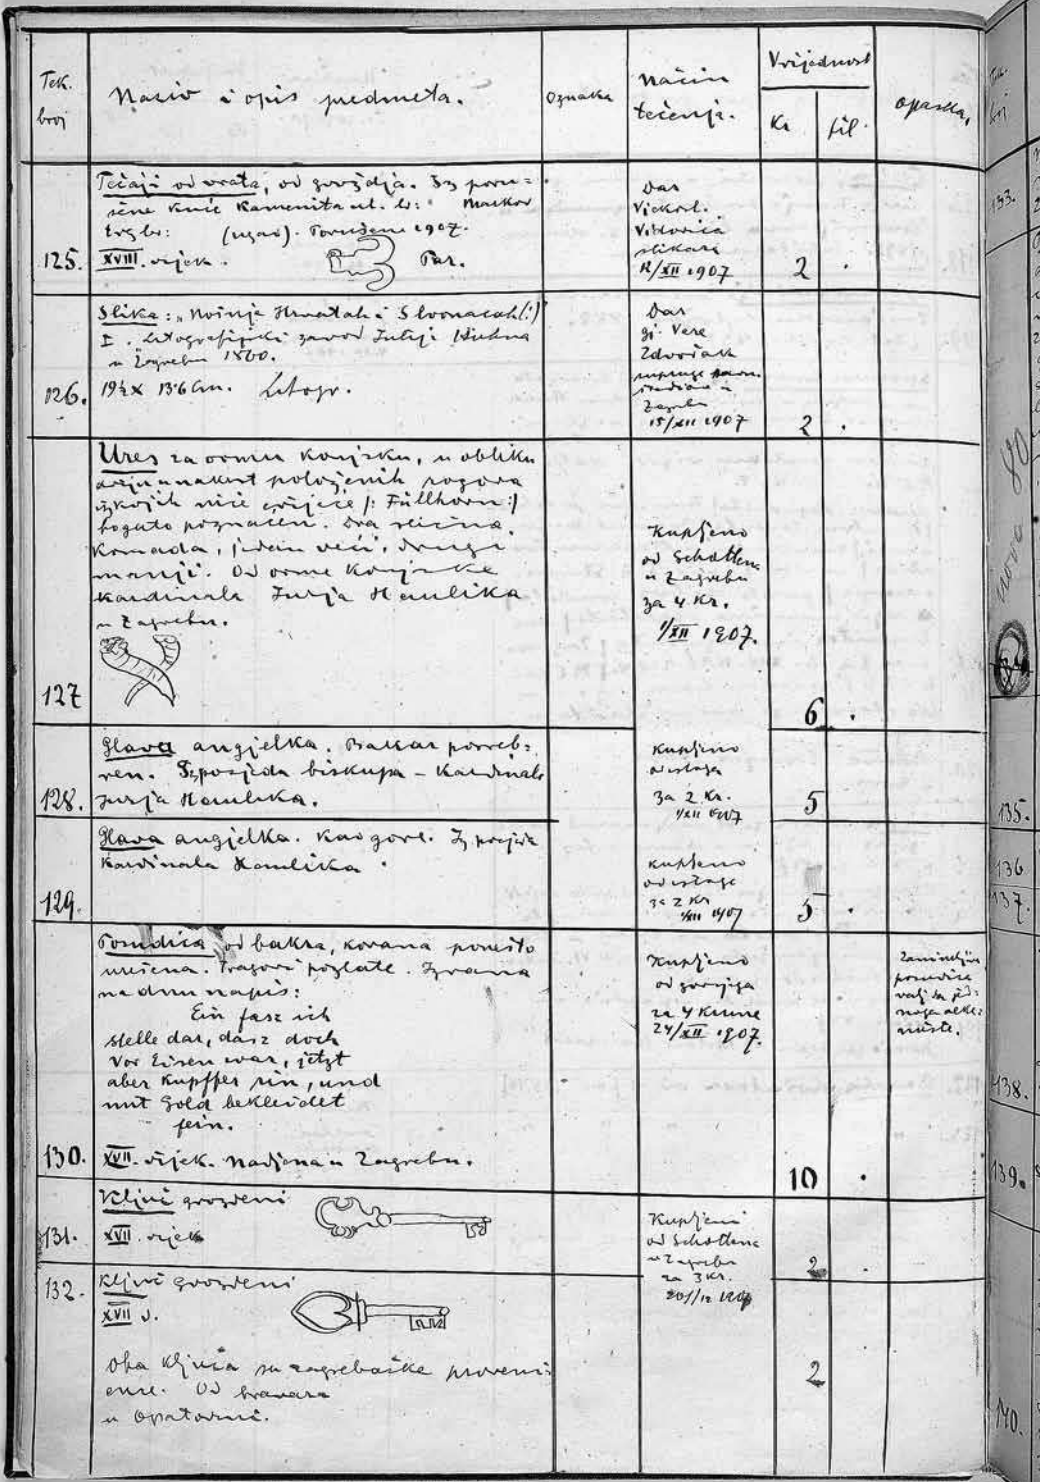 Tek. broj
Naziv i opis predmeta.
Oznaka
Način
tečenja.
Vrijednost
Kr
fil.
opaska.
125.
Tečaji od vrata, od gvoždja. Iz poru=
šene kuće Kamenita ul. br: Markov
Trg br: (ugao). Porušena 1907.
XVIII. vijek. Par.
Dar
Vjekosl.
slikara
12/XII 1907
2 .
126.
Slika: „Nošnja Hrvatah i Slavonacah(!)"
I. Litografijski zavod Julija Hühna
u Zagrebu 1860.
19½ x 13·6 cm. Litogr.
Dar
gj. Vere
u
Zagrebu
15/XII 1907
2 .
127
Ures za ormu konjsku, u obliku
dviju unakrst položenih rogova
iz kojih niče cvijeće /: Füllhorn :/
bogato pozlaćen. Dva slična
komada, jedan veći, drugi
manji. Od orme konjske
kardinala Jurja Haulika
u Zagrebu.
Kupljeno
od Schottena
u Zagrebu
za 4 Kr.
1/XII 1907.
6 .
128.
Glava angjelka. Bakar posreb=
ren. Iz posjeda biskupa - Kardinala
Jurja Haulika.
Kupljeno
od istoga
za 2 Kr.
1/XII 1907
5
129.
Glava angjelka. Kao gore. Iz posjeda
Kardinala Haulika.
Kupljeno
od istoga
za 2 Kr
1/XII 1907
5 .
130.
Posudica od bakra, kovana ponešto
urešena. Tragovi pozlate. Izvana
na dnu napis:
Ein fasz ich
stelle dar, dasz doch
vor Eisen war, jetzt
aber Kupffer bin, und
mit Gold bekleidet
fein.
XVII. vijek. Nadjena u Zagrebu.
Kupljeno
od gornjega
za 4 Krune
24/XII 1907.
10 .
Zanimljiva
posudica
valjda jed=
noga alke=
miste.
131.
Ključ gvozdeni
XVII. vijek
Kupljeni
od Schottena
u Zagrebu
za 3 Kr.
2 .
132.
Ključ gvozdeni
XVII v.
Oba ključa su zagrebačke proveni=
ence. Od bravara
u Opatovini.
2
133.
135.
136
137.
138.
139.
140.